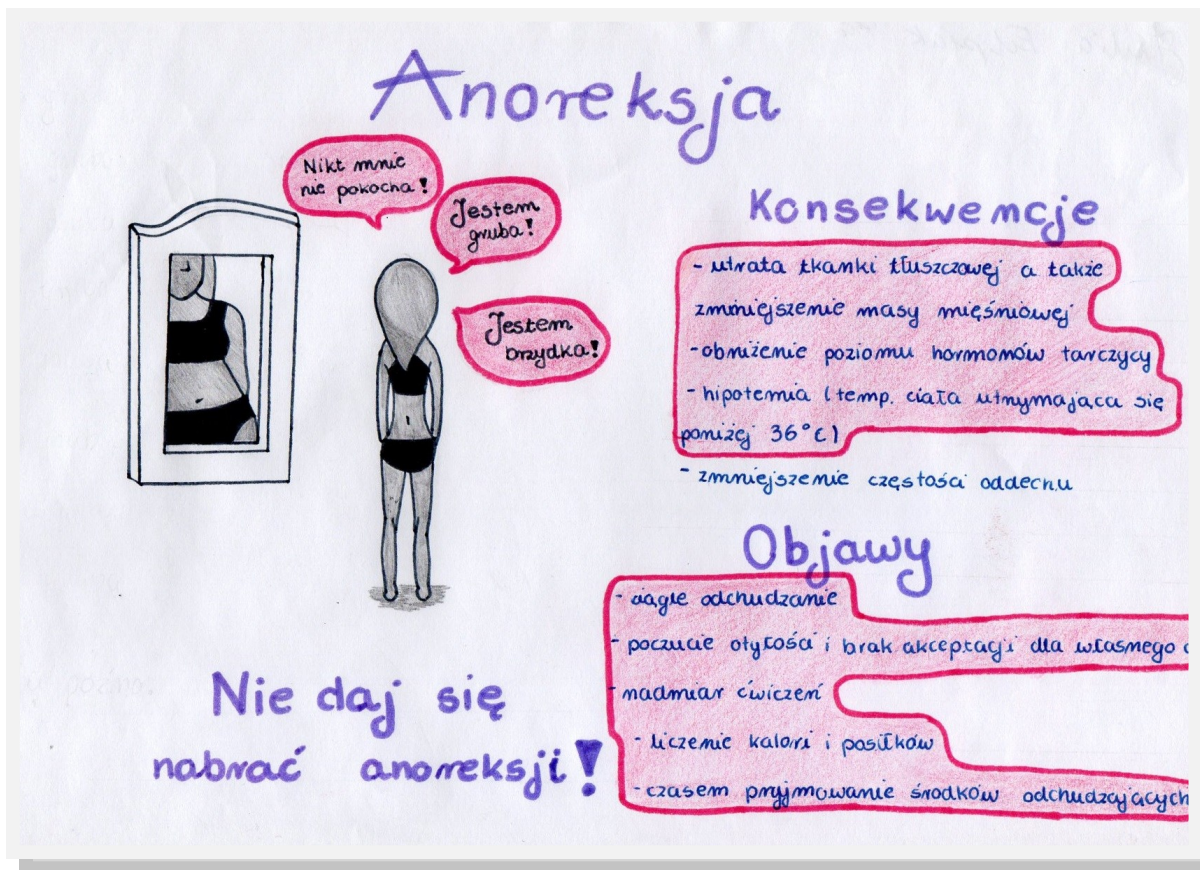 Anoreksja
Nikt mnie
nie pokocha!
Jestem
gruba!
Jestem
brzydka!
Konsekwencje
- utrata tkanki tłuszczowej a także
zmniejszenie masy mięśniowej
- obniżenie poziomu hormonów tarczycy
- hipotermia (temp. ciała utrzymająca się
poniżej 36°C)
- zmniejszenie częstości oddechu
Objawy
- ciągłe odchudzanie
- poczucie otyłości i brak akceptacji dla własnego
- nadmiar ćwiczeń
- liczenie kalorii i posiłków
- czasem przyjmowanie środków odchudzających
Nie daj się
nabrać anoreksji!